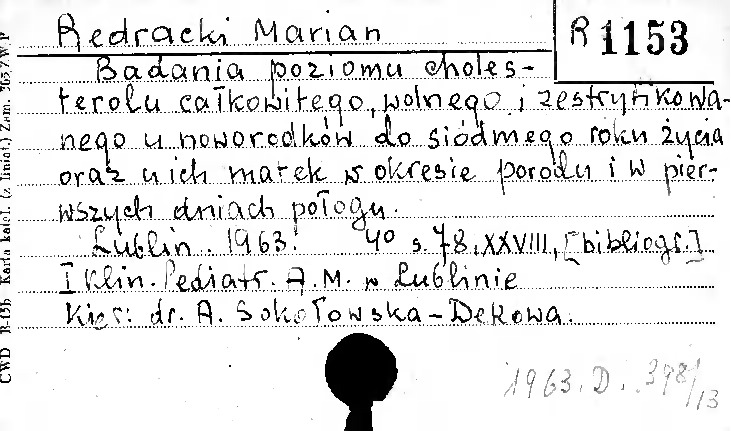 Redracki Marian R 1153
Badania poziomu choles-
terolu całkowitego, wolnego i zestryfikowa-
nego u noworodków do siódmego roku życia
oraz u ich matek w okresie porodu i w pier-
wszych dniach połogu.
Lublin. 1963. 4° s. 78, XXVIII, [bibliogr.]
I Klin. Pediatr. A.M. w Lublinie
Kier: dr. A. Sokołowska-Dekowa.
1963. D. 398/13
Karta katal. (z liniat.) Zam.